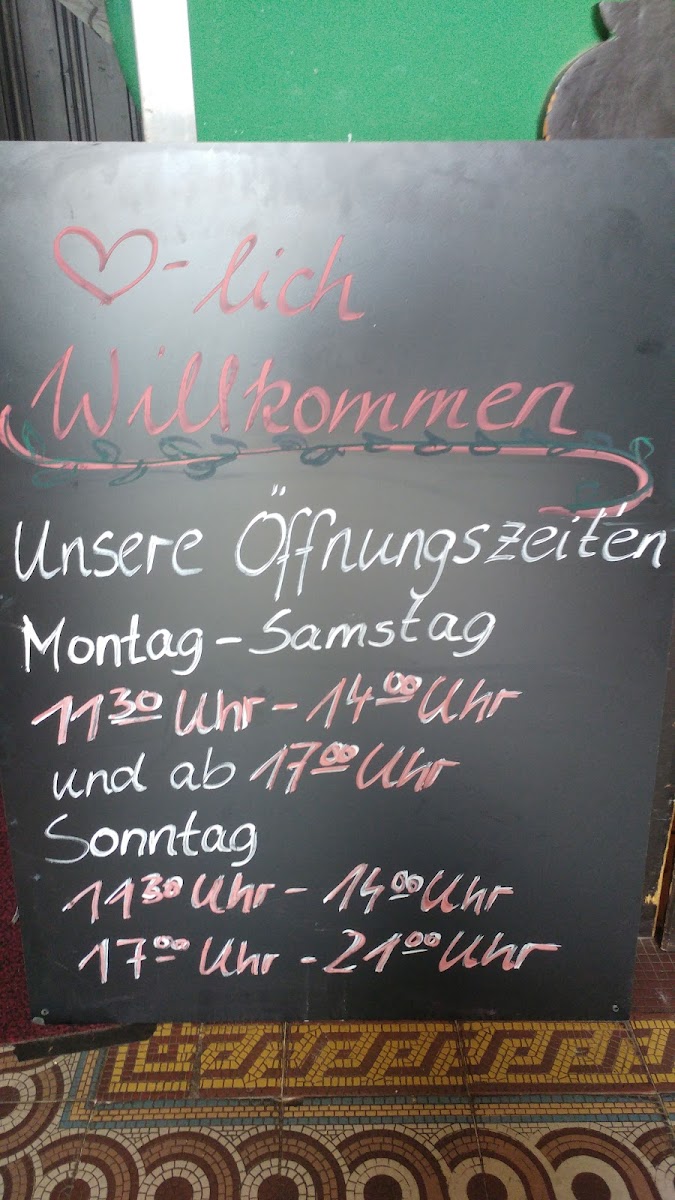 ♡-lich
Willkommen
Unsere Öffnungszeiten
Montag - Samstag
11³⁰ Uhr - 14⁰⁰ Uhr
und ab 17⁰⁰ Uhr
Sonntag
11³⁰ Uhr - 14⁰⁰ Uhr
17⁰⁰ Uhr - 21⁰⁰ Uhr